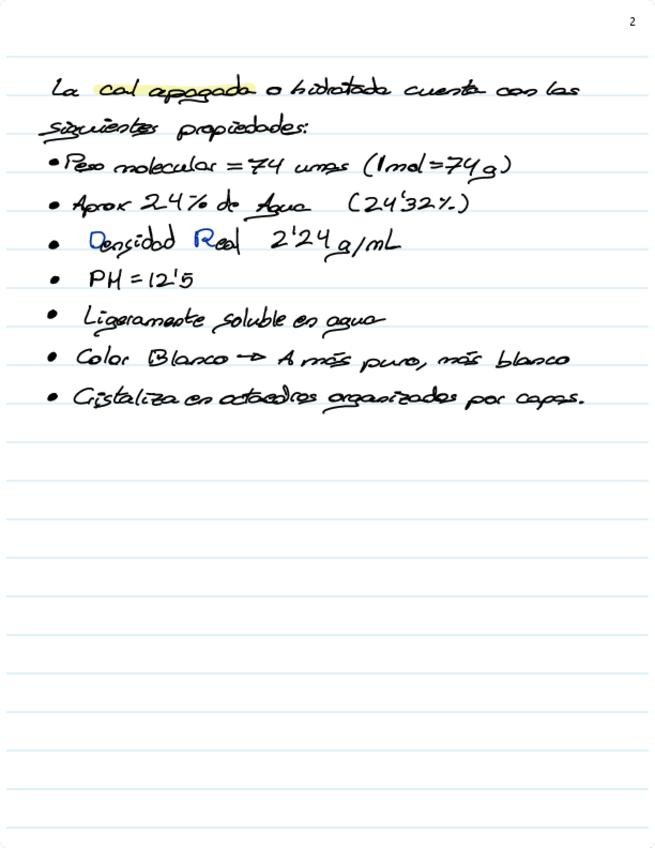 2
La cal apagada o hidratada cuenta con las
siguientes propiedades:
• Peso molecular = 74 umas (1mol=74g)
• Aprox 24% de Agua (24'32%)
• Densidad Real 2'24 g/mL
• PH = 12'5
• Ligeramente soluble en agua
• Color Blanco → A más puro, más blanco
• Cristaliza en octaedros organizados por capas.